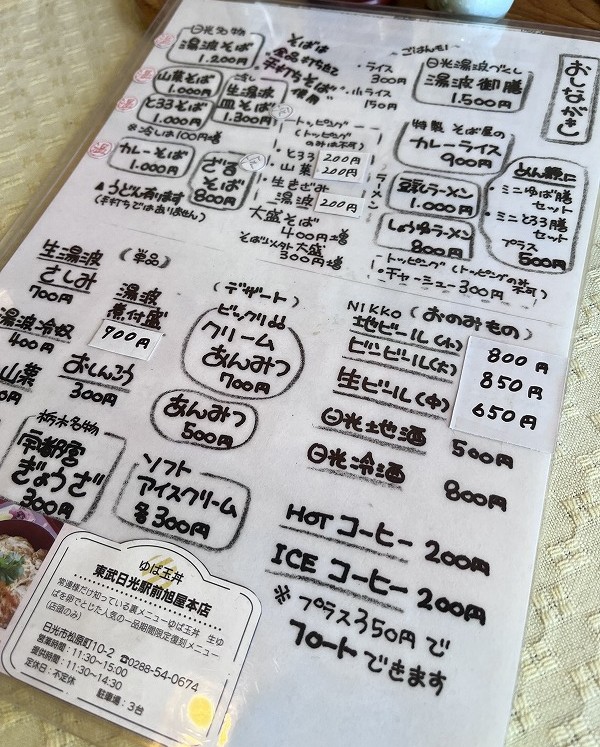 おしながき
日光名物
湯波そば
1.200円
温
山菜そば
1.000円
温
とろろそば
1.000円
※冷しは100円増
温
カレーそば
1.000円
▲うどん有ります
(手打ちではありません)
冷し
生湯波
皿そば
1.300円
ざる
そば
800円
そばは
全品打ち立て
手打ちそば
使用
・ライス
300円
・小ライス
150円
トッピング
(トッピング
のみは不可)
・とろろ 200円
・山菜 200円
・生きざみ
湯波 200円
大盛そば
400円増
そば以外大盛
300円増
－ごはんもの－
日光湯波づくし
湯波御膳
1.500円
特製 そば屋の
カレーライス
900円
ラーメン
豆乳ラーメン
1.000円
しょうゆラーメン
800円
トッピング(トッピングのみ不可)
・チャーシュー300円
めん類に
・ミニゆば膳
セット
・ミニとろろ膳
セット
プラス
500円
(単品)
生湯波
さしみ
700円
湯波
煮付盛
900円
湯波冷奴
400円
山菜
おしんこ
300円
栃木名物
宇都宮
ぎょうざ
300円
(デザート)
ビックリ
クリーム
あんみつ
700円
あんみつ
500円
ソフト
アイスクリーム
各300円
NIKKO (おのみもの)
地ビール(小) 800円
ビンビール(大) 850円
生ビール(中) 650円
日光地酒 500円
日光冷酒 800円
HOT コーヒー 200円
ICE コーヒー 200円
※プラス350円で
フロートできます
ゆば玉丼
東武日光駅前旭屋本店
常連様だけ知っている裏メニューゆば玉丼 生ゆ
ばを卵でとじた人気の一品期間限定復刻メニュー
(店頭のみ)
日光市松原町10-2 ☎0288-54-0674
営業時間：11:30~15:00
提供時間：11:30~14:30
定休日：不定休
駐車場：3台